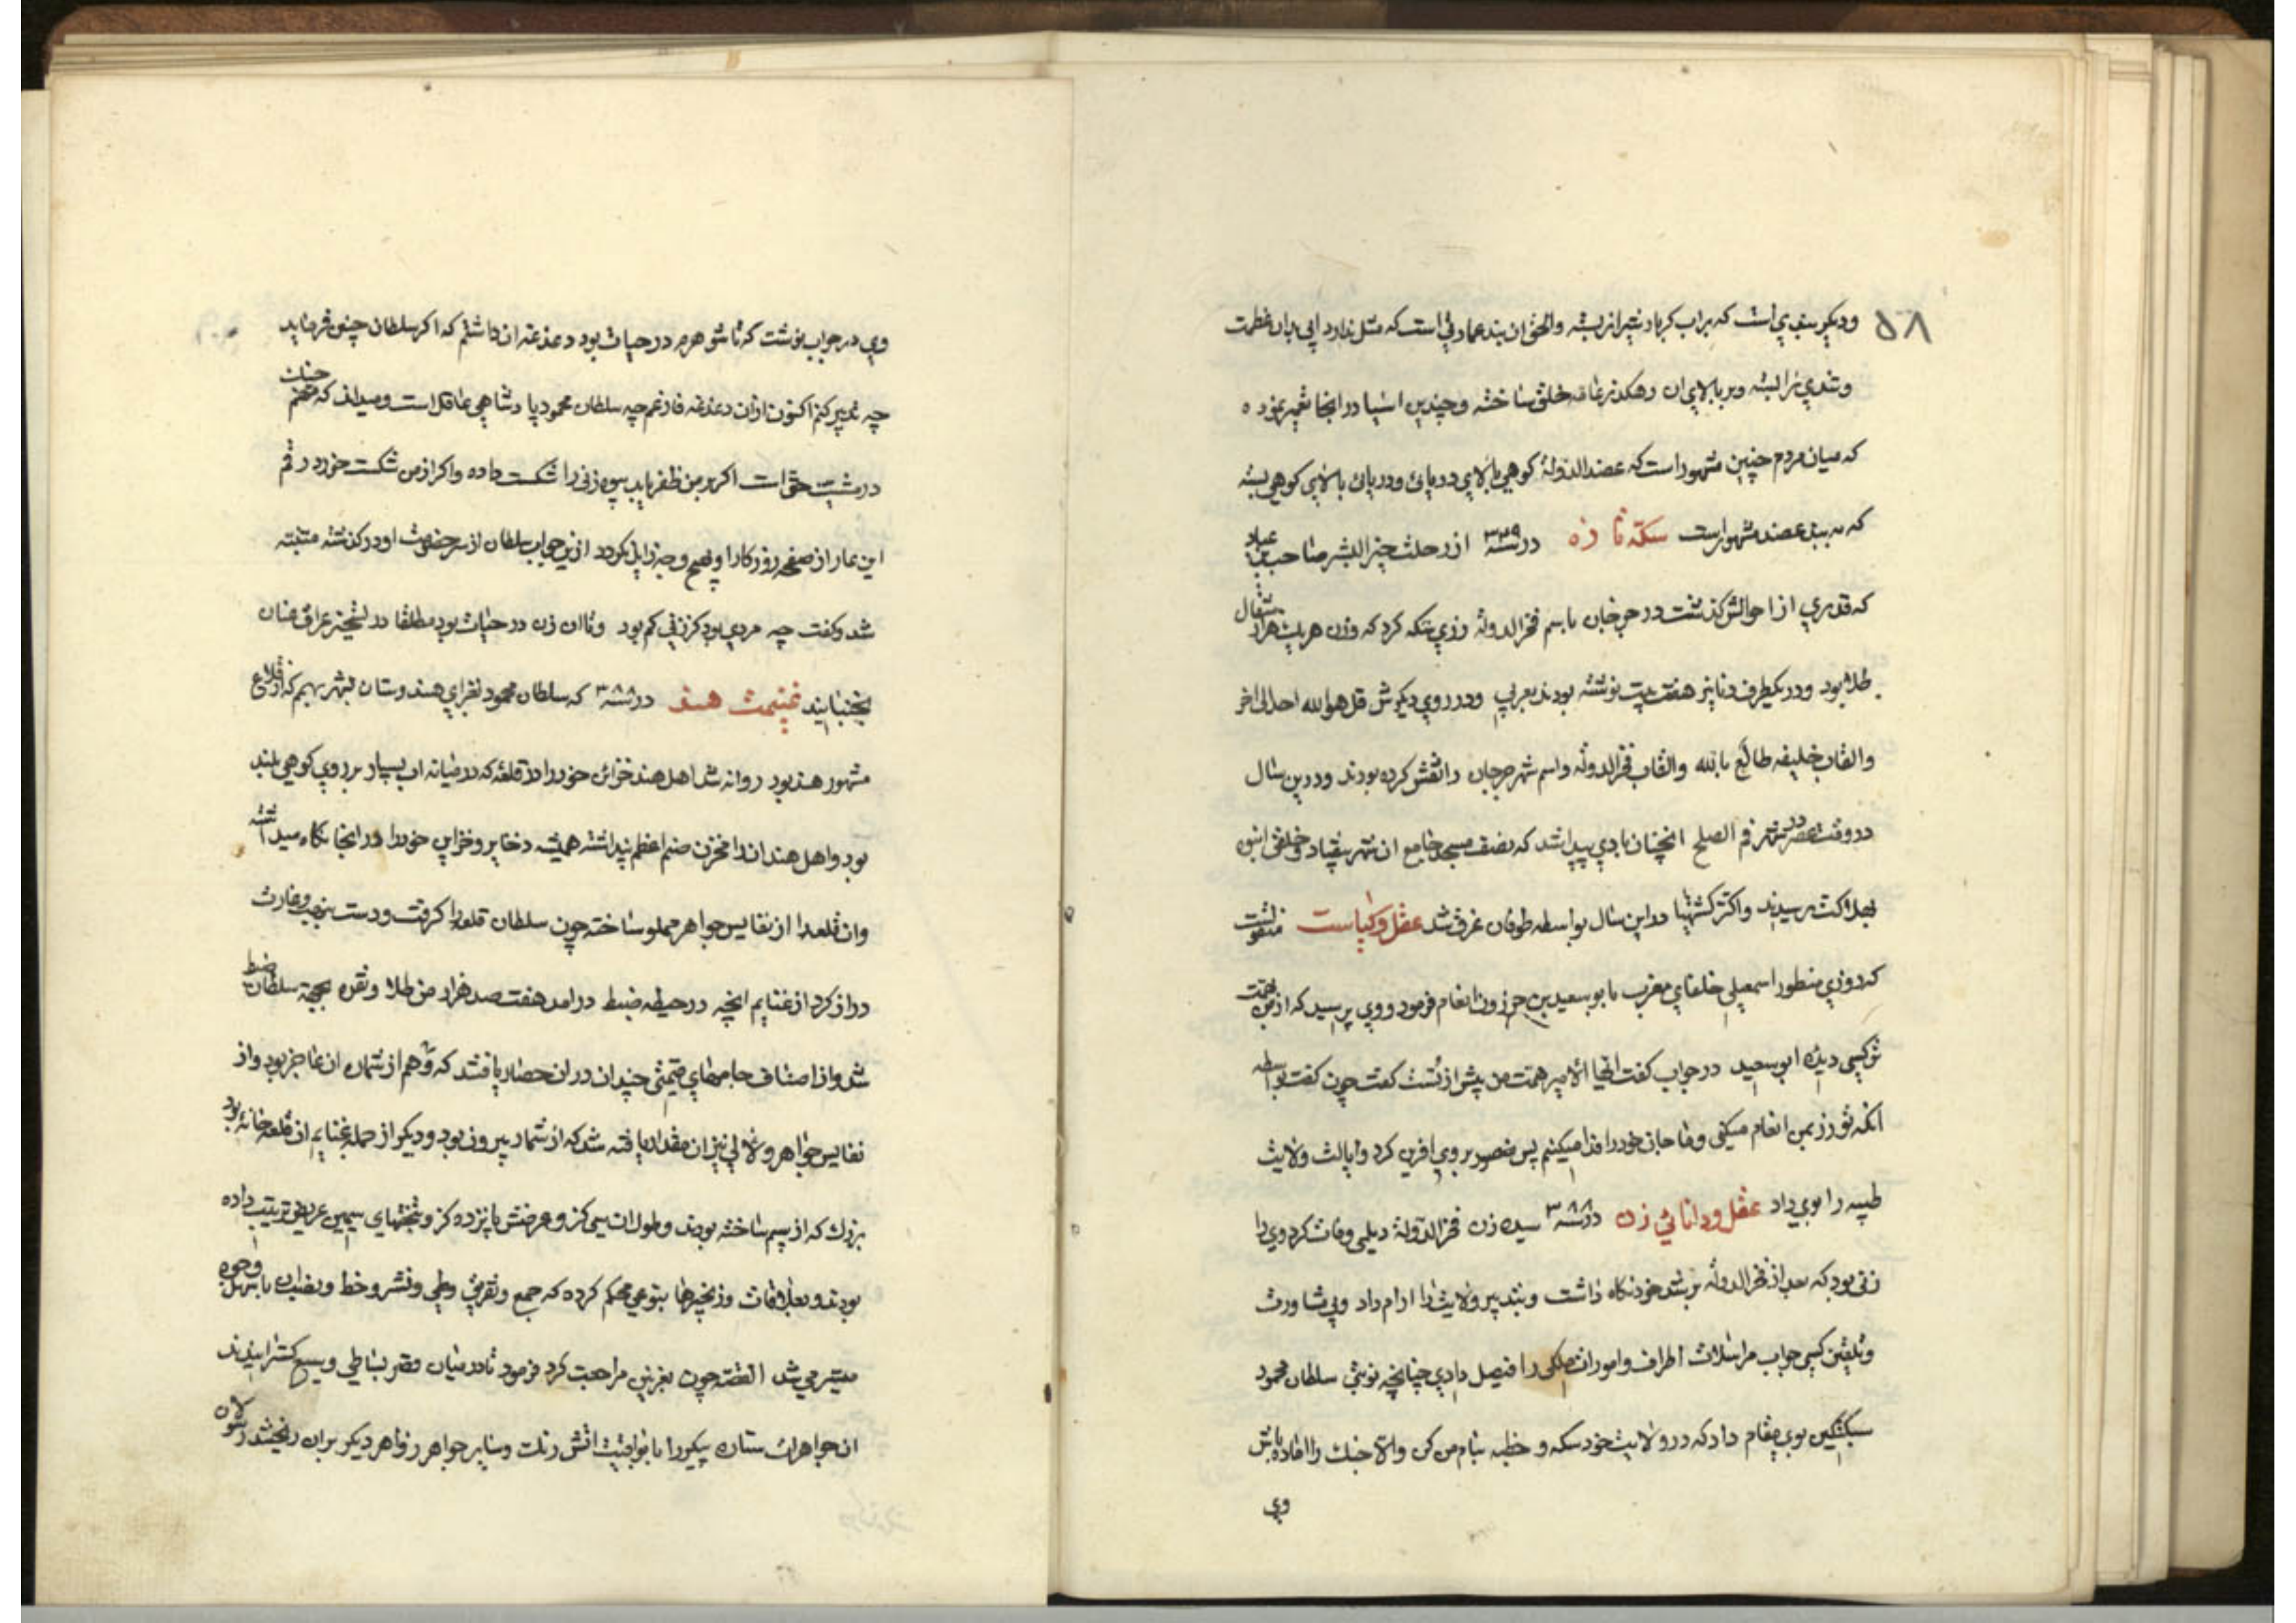 ۵۸
ودیکر بندی است که براب کر باد نیز از بسته والحق ان بند عمارتی است که مثل ندارد ابی بدان عظمت
وتندی را بسته وبر بالای ان رهکذر عامه خلق ساخته وچندین اسیا در انجا تعمیر نموده
که میان مردم چنین مشهور است که عضدالدوله کوهی بالای دریائ ودریائ بالای کوهی بسته
که به بند عضد مشهور است سکه تازه در سنه ۳۳۹ از رحلت خیر البشر صاحب بن عباد
که قدری از احوالش کذشت در جرجان باسم فخر الدوله زری سکه کرد که وزن هر یک هزار مثقال
طلا بود ودر یکطرف دنانیر هفت بیت نوشته بودند بعربی ودر روی دیکرش قل هو الله احد الی اخر
والقاب خلیفه طالع بالله والقاب فخر الدوله واسم شهر جرجان را نقش کرده بودند ودرین سال
در وقت عصر در شهر فم الصلح انچنان بادی پیدا شد که نصف مسجد جامع ان شهر بیفتاد وخلقی انبوه
بهلاکت رسیدند واکثر کشتیها در این سال بواسطه طوفان غرق شد عقل وکیاست منقولست
که روزی منظور اسمعیلی خلفای مغرب با بو سعید بن خرزون انعام فرمود و وی پرسید که از من بهمت
تو کسی دیده ابو سعید در جواب کفت ایها الامیر همت من بیش از تست کفت چون کفت بواسطه
انکه تو زر بمن انعام میکنی وما جان خود را فدا میکنیم پس منصور بر وی افرین کرد وایالت ولایت
طیبه را بوی داد عقل ودانائی زن در سنه ۳۸۸ سیده زن فخر الدوله دیلمی وفات کرد وی را
زنی بود که بعد از فخر الدوله مرشد خود نکاه داشت وبتدبیر ولایت را ارام داد وبی مشاورت
وتلقین کسی جواب مراسلات اطراف وامورات ملکی را فیصل دادی چنانچه نوبتی سلطان محمود
سبکتکین بوی پیغام داد که در ولایت خود سکه و خطبه بنام من کن والا جنک را اماده باش
وی
وی در جواب نوشت که تا شوهرم در حیات بود دغدغه ان داشتم که اکر سلطان چنین فرماید
چه تدبیر کنم اکنون از ان دغدغه فارغم چه سلطان محمود پادشاهی عاقل است ومیداند که مهم جنک
در مشیت حق است اکر بر من ظفر یابد بیوه زنی را شکست داده واکر از من شکست خورد رقم
این عار از صفحه روزکار او بهیچ وجه زایل نکردد ازین جواب سلطان از سر خصومت او در کذشته متنبه
شد وکفت چه مردی بود کز زنی کم بود وتا ان زن در حیات بود مطلقا در تسخیر عراق عنان
بجنبانید غنیمت هند در سنه ۳۸۸ که سلطان محمود بغزای هندوستان بشهر بهیم که از قلاع
مشهور هند بود روانه شد اهل هند خزائن خود را در قلعه که در میانه اب بسیار بر روی کوهی بلند
بود واهل هند ان را مخزن صنم اعظم پنداشته همیشه ذخایر وخزاین خود را در انجا نکاه میداشتند
وان قلعه را از نفایس جواهر مملو ساخته چون سلطان قلعه را کرفت ودست بنهب وغارت
دراز کرد از غنایم انچه در حیطه ضبط درامد هفتصد هزار من طلا ونقره بجهة سلطان ضبط
شد واز اصناف جامهای قیمتی چندان در ان حصار یافتند که وهم از شمار ان عاجز بود واز
نفایس جواهر ولالی نیز ان مقدار یافته شد که از شمار بیرون بود ودیکر از جمله غنایم ان قلعه خانه بود
بزرک که از سیم ساخته بودند وطول ان سی کز وعرضش پانزده کز وتختهای سیمین عریض ترتیب داده
بودند وبعلاقات وزنجیرها بنوعی محکم کرده که جمع وتفریق وطی ونشر وخط ونصب ان باسهل وجوه
میسر می شد القصه چون بغزنین مراجعت کرد فرمود تا در میان قصر بساطی وسیع کسترانیدند
ان جواهرات ستاره پیکر را با یواقیت اتش رنک وسایر جواهر زواهر دیکر بران ریختند رسولان